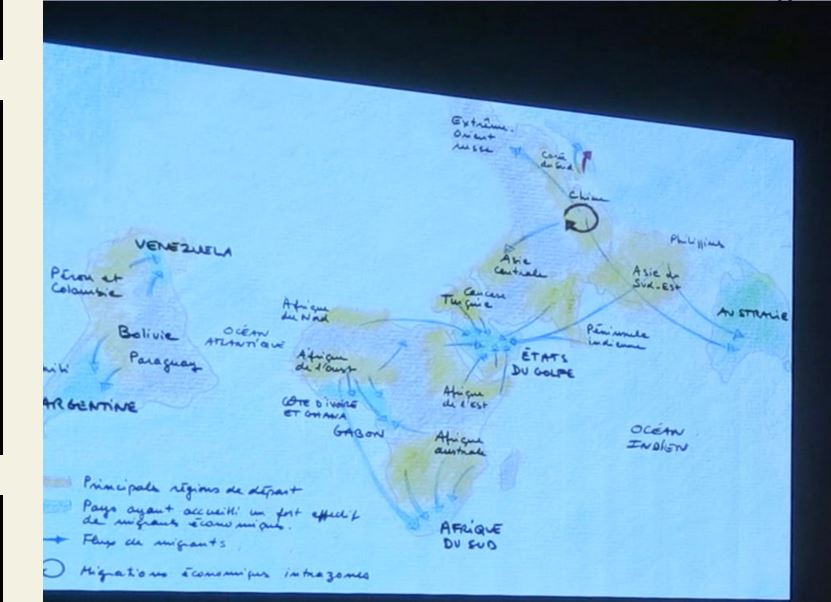 Extrême-
Orient
russe
Corée
du Sud
Chine
VENEZUELA
Pérou et
Colombie
Asie
Centrale
Philippines
Asie du
Sud-Est
Caucase
Turquie
Afrique
du Nord
AUSTRALIE
Bolivie
Paraguay
OCÉAN
ATLANTIQUE
Péninsule
indienne
Afrique
de l'ouest
ÉTATS
DU GOLFE
ARGENTINE
CÔTE D'IVOIRE
ET GHANA
Afrique
de l'Est
GABON
Afrique
australe
OCÉAN
INDIEN
AFRIQUE
DU SUD
Principales régions de départ
Pays ayant accueilli un fort effectif
de migrants économiques.
Flux de migrants
Migrations économiques intrazones